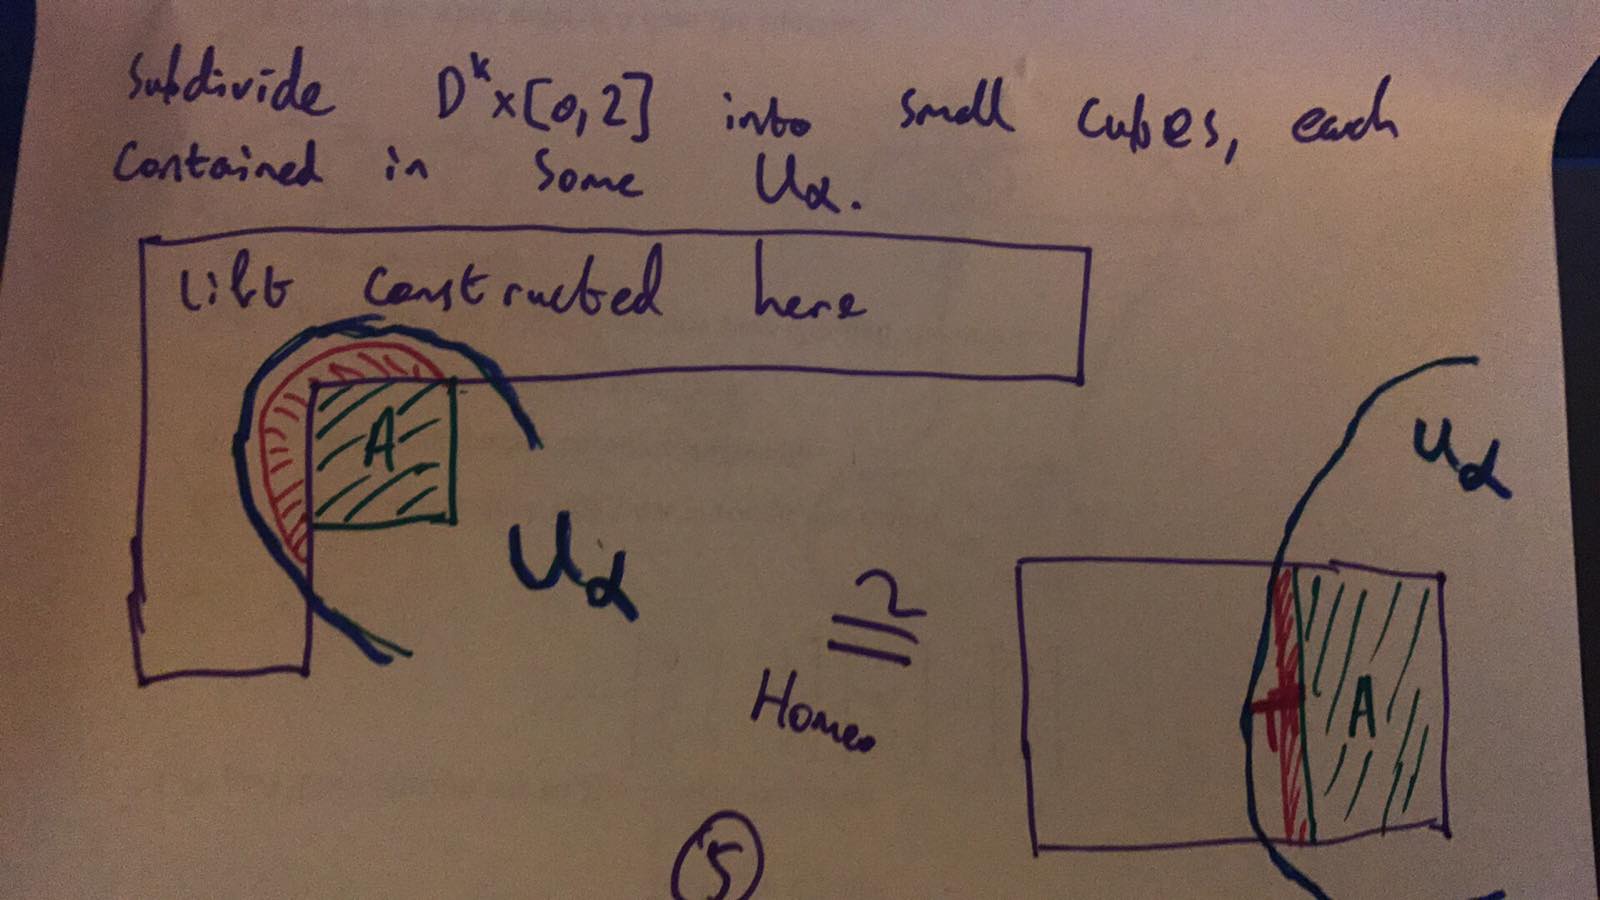 Subdivide D^k×[0,2] into small cubes, each
contained in some Uα.
Lift constructed here
A
Uα
≅
Homeo
Uα
A
5